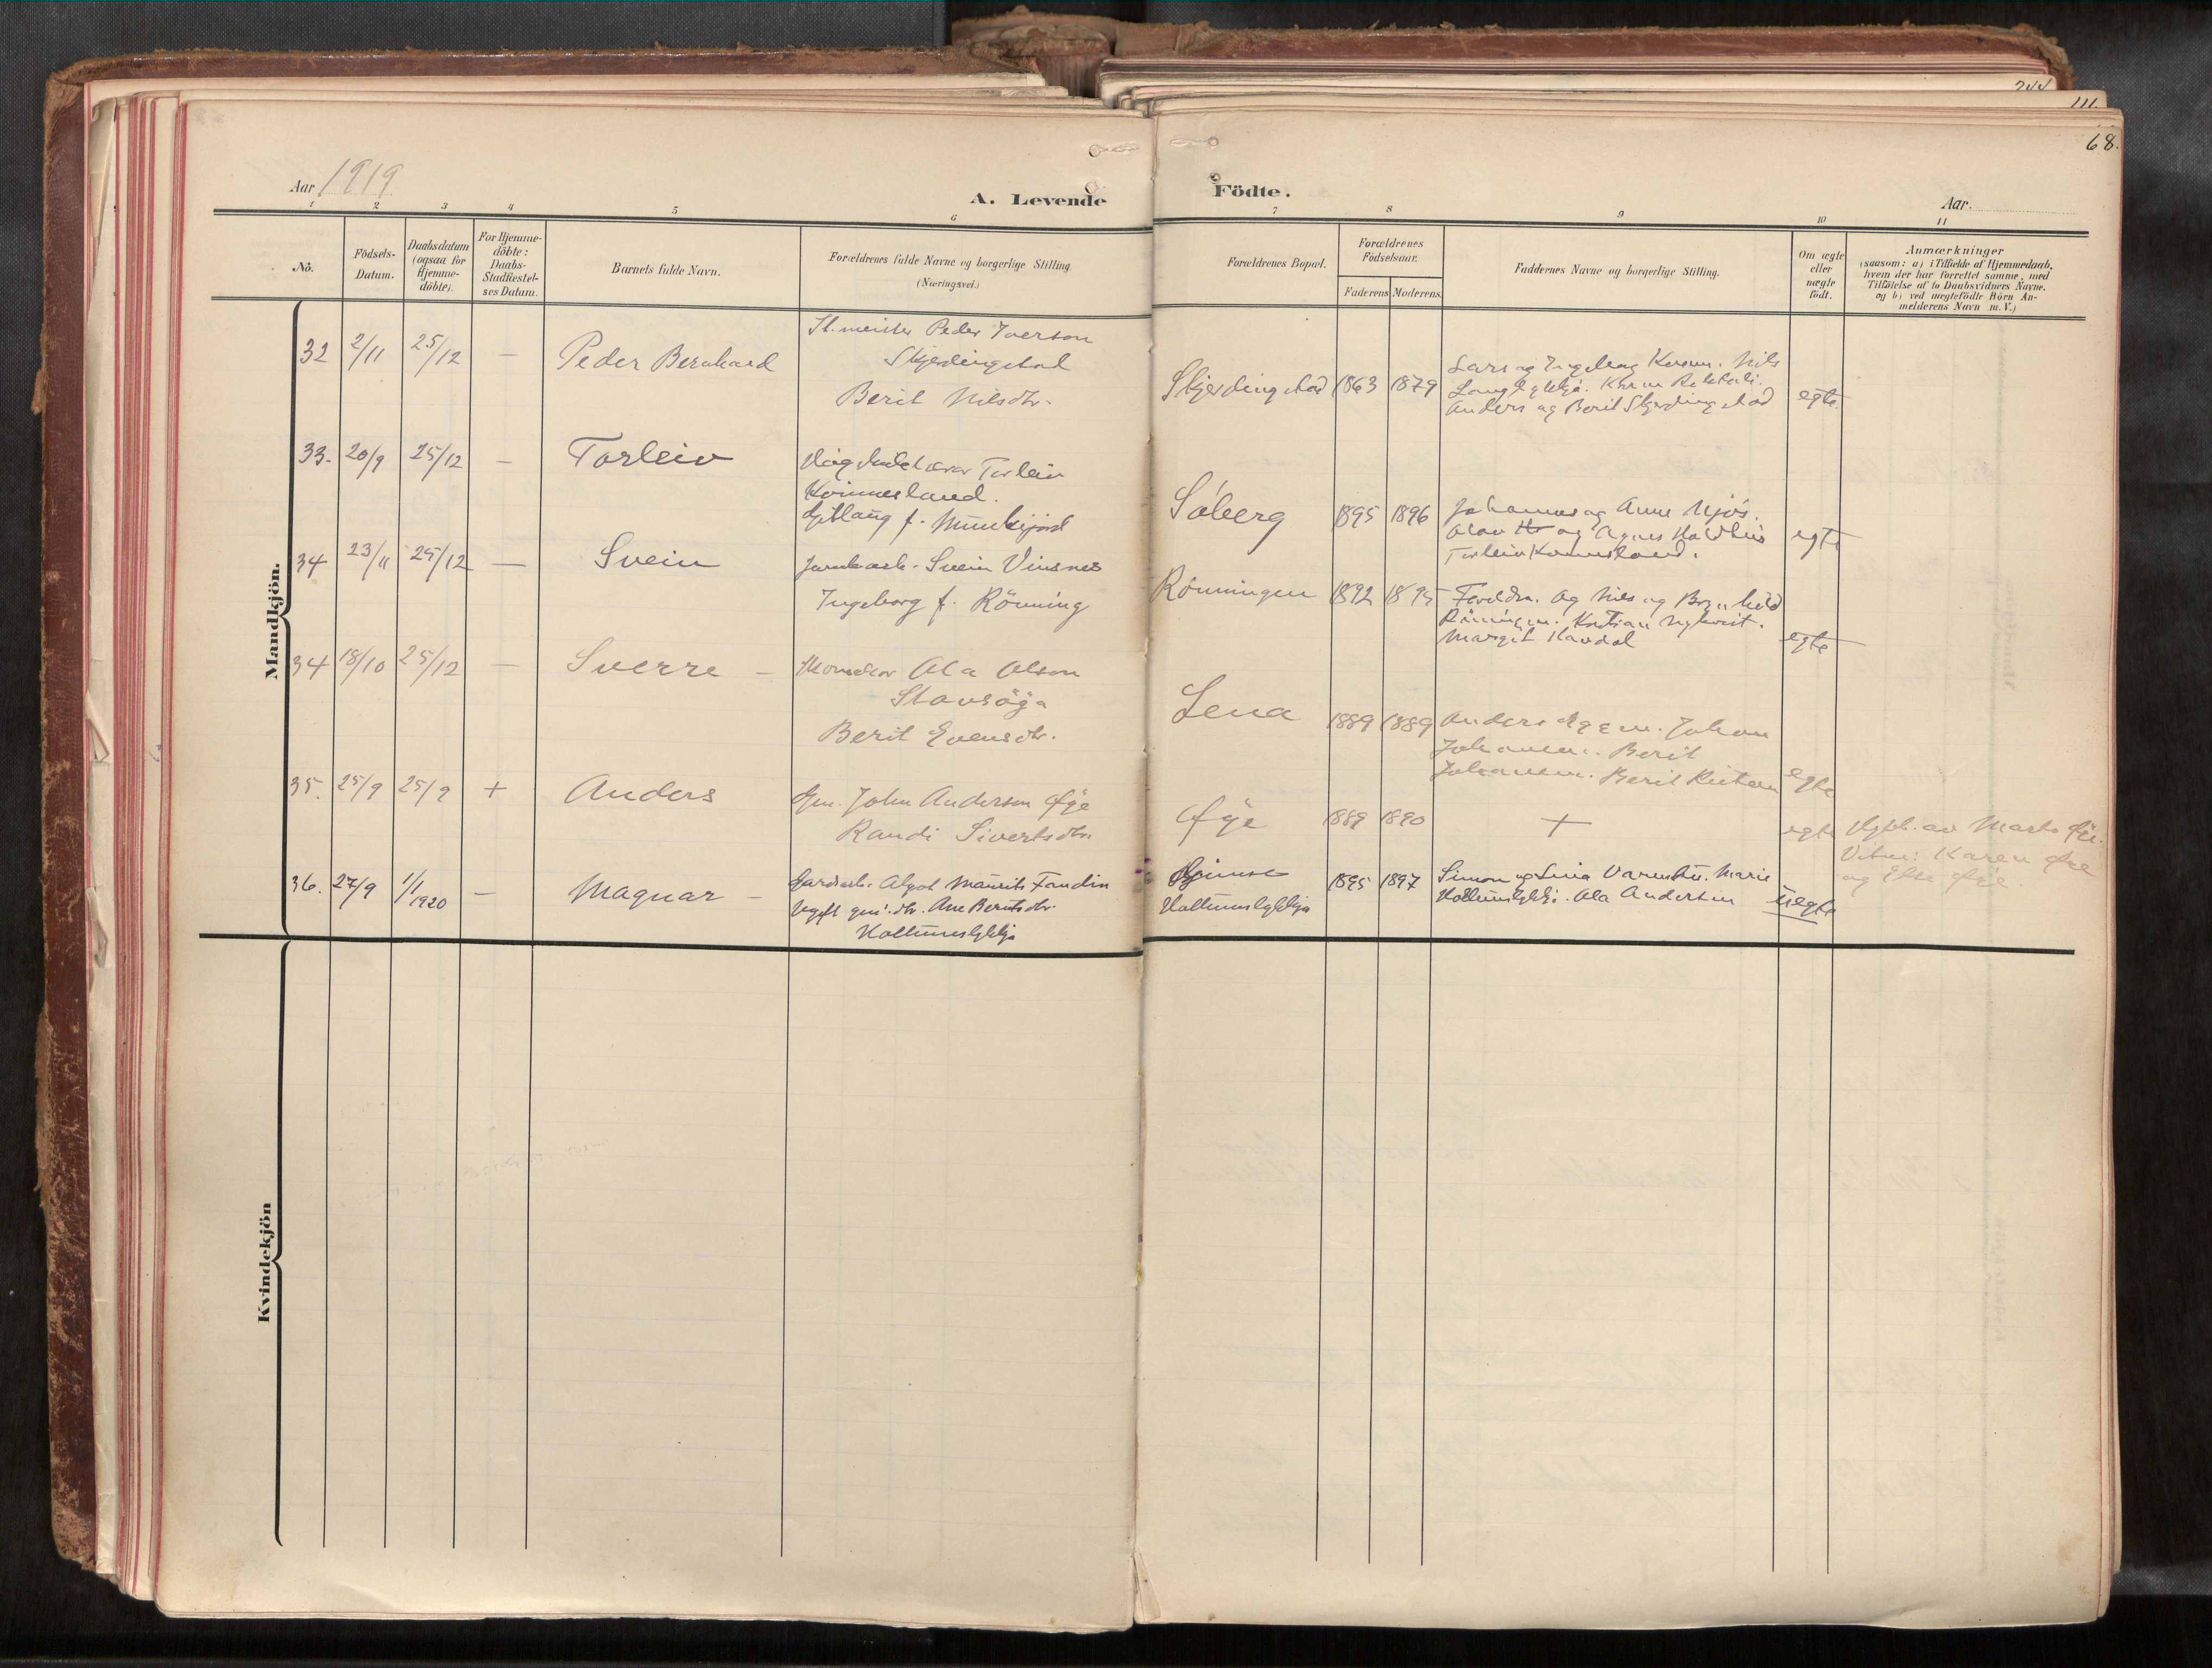 244
111.
68.
Aar 1919
A. Levende
Födte.
Aar.
1 2 3 4 5 6 7 8 9 10 11
No.
Födsels-
Datum.
Daabsdatum
(ogsaa for
Hjemme-
döbte).
For Hjemme-
döbte:
Daabs-
Stadfæstel-
ses Datum.
Barnets fulde Navn.
Forældrenes fulde Navne og borgerlige Stilling
(Næringsvei.)
Forældrenes Bopæl.
Forældrenes
Födselsaar.
Faderens Moderens.
Faddernes Navne og borgerlige Stilling.
Om ægte
eller
uægte
födt.
Anmærkninger
(saasom: a) i Tilfælde af Hjemmedaab,
hvem der har forrettet samme, med
Tilföielse af to Daabsvidners Navne.
og b) ved uægtefödte Börn An-
melderens Navn m. V.)
Mandkjön.
32 2/11 25/12 — Peder Bernhard
St.meister Peder Iverson
Skjerdingstad
Berit Nilsdtr.
Skjerdingstad 1863 1879
Lars og Ingeborg Nils
Anders og Berit Skjerdingstad
egte.
33. 20/9 25/12 — Torleiv
Torleiv
Kvinnesland.
f.
Söberg 1895 1896
Johannes og Anne Mjös.
Olav og Agnes
Torleiv
egte
34 23/11 25/12 — Svein
Svein Vinsnes
Ingeborg f. Rönning
Rönningen 1892 1895
Foreldra. Og Nils og Brynhild
Rönningen. Kristian
Margit
egte
34 18/10 25/12 — Sverre —
Ola Olson
Stavsöya
Berit Evensdtr.
Lena 1889 1889
Anders Johan
Johansen. Berit
Johansen. Berit
egte
35. 25/9 25/9 + Anders
Gm. John Anderson Øye
Randi Sivertsdtr.
Øye 1889 1890 + egte
av Marta Øye.
Vitne: Karen Øye
og Øye
36. 27/9 1/1 1920 — Magnar —
Algot Maurits Fandin
Ugift Ane Berntsdtr.
Holtumslykkja
Gjimse
Holtumslykkja
1895 1897
Simon og Lina Marie
Ola Anderson
uegte
Kvindekjön